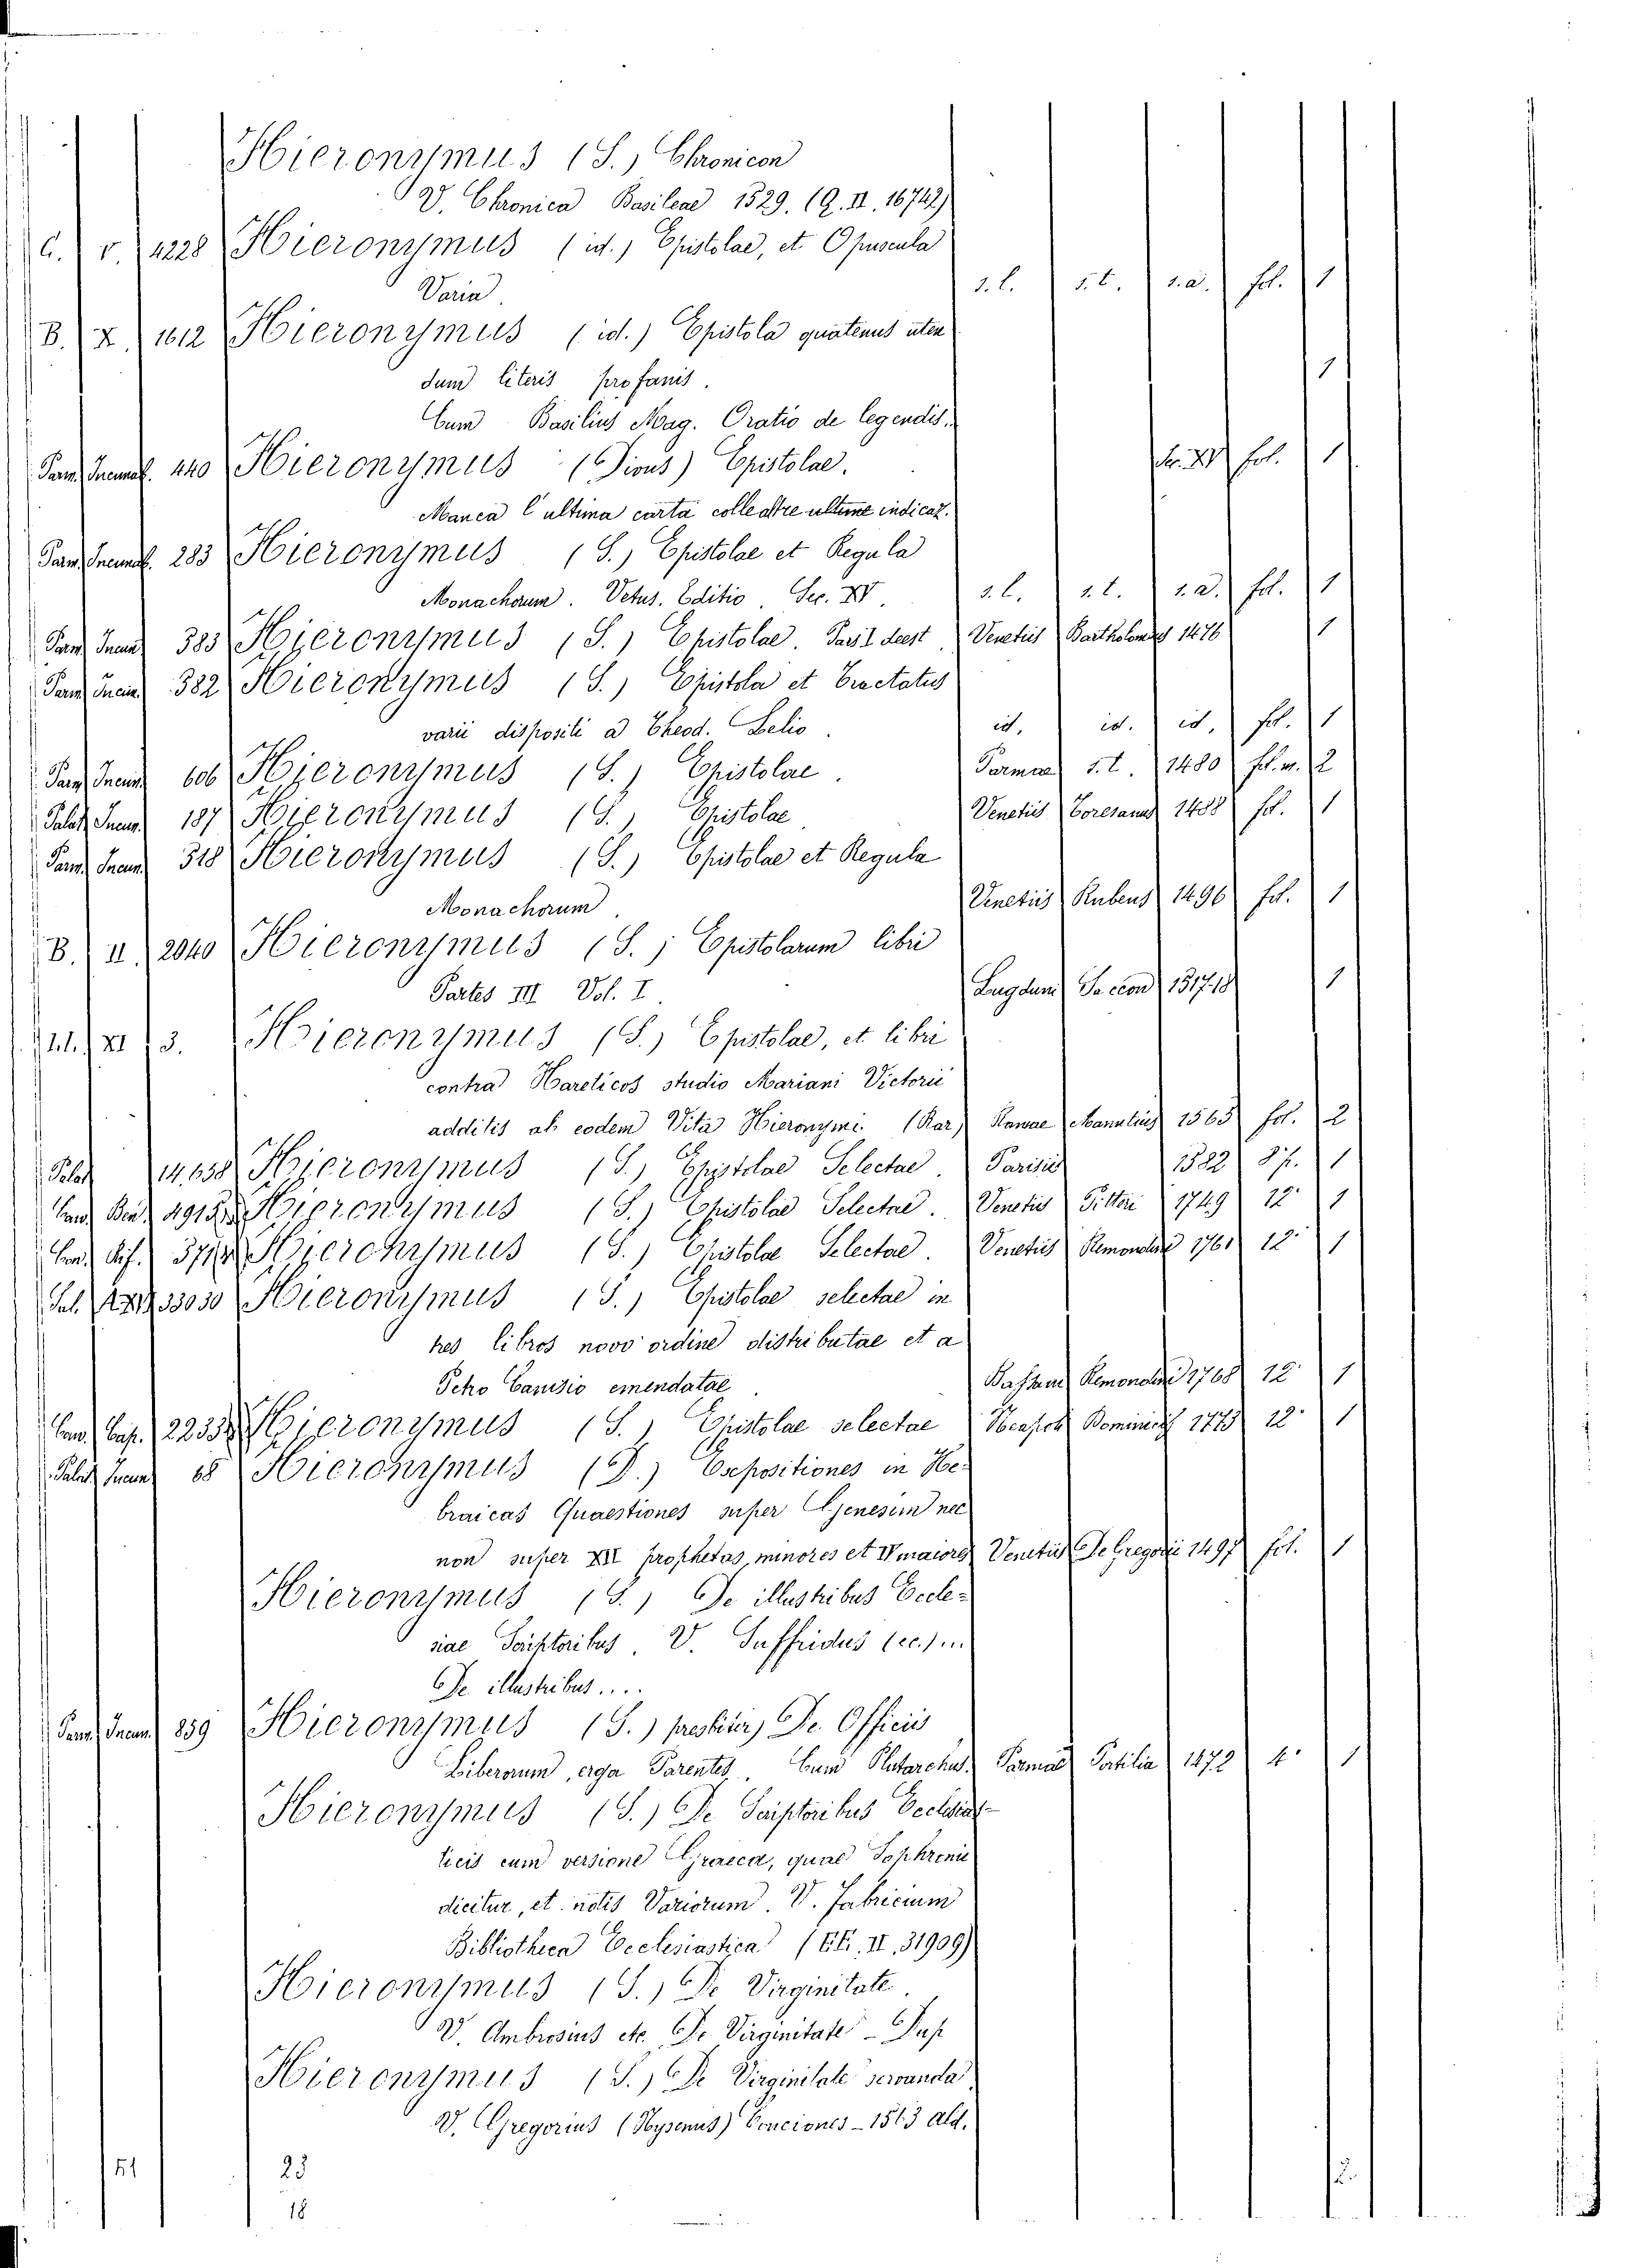 Hieronymus (S.) Chronicon
V. Chronica Basileae 1529. (Q. II. 16742)
C. V. 4228 Hieronymus (id.) Epistolae, et Opuscula
Varia. s.l. s.t. s.a. fol. 1
B. X. 1612 Hieronymus (id.) Epistola quatenus uten
dum literis profanis. 1
Cum Basilius Mag. Oratio de legendis.
Parm. Incunab. 440 Hieronymus (Divus) Epistolae. Sec. XV fol. 1
Manca l'ultima carta colle altre ultime indicaz.
Parm. Incunab. 283 Hieronymus (S.) Epistolae et Regula
Monachorum. Vetus. Editio. Sec. XV. s.l. s.t. s.a. fol. 1
Parm. Incun. 383 Hieronymus (S.) Epistolae. Pars I deest. Venetiis Bartholomeus 1476 1
Parm. Incun. 382 Hieronymus (S.) Epistola et Tractatus
varii dispositi a Theod. Lelio. id. id. id. fol. 1
Parm. Incun. 606 Hieronymus (S.) Epistolae. Parmae s.t. 1480 fol. m. 2
Palat. Incun. 187 Hieronymus (S.) Epistolae Venetiis Toresanus 1488 fol. 1
Parm. Incun. 318 Hieronymus (S.) Epistolae et Regula
Monachorum. Venetiis Rubeus 1496 fol. 1
B. II. 2040 Hieronymus (S.) Epistolarum libri
Partes III Vol. I. Lugduni Saccon 1517-18 1
XI 3. Hieronymus (S.) Epistolae, et libri
contra Hareticos studio Mariani Victorii
additis ab eodem Vita Hieronymi. (Rar.) Romae Manutius 1565 fol. 2
Palat. 14,638 Hieronymus (S.) Epistolae Selectae. Parisiis 1582 8°p. 1
Cand. Ben. Hieronymus (S.) Epistolae Selectae. Venetiis Pitteri 1749 12° 1
Hieronymus (S.) Epistolae Selectae. Venetiis Remondini 1761 12° 1
33030 Hieronymus (S.) Epistolae selectae in
tres libros novo ordine distributae et a
Petro Canisio emendatae. Bassani Remondini 1768 12° 1
Cap. Hieronymus (S.) Epistolae selectae Dominici 1773 12° 1
Palat. Incun. 68 Hieronymus (D.) Expositiones in He-
braicas Quaestiones super Genesim nec
non super XII prophetas minores et IV maiores Venetiis De Gregorii 1497 fol. 1
Hieronymus (S.) De illustribus Eccle-
siae Scriptoribus. V. Suffridus (ec.)...
De illustribus....
Parm. Incun. 859 Hieronymus (S.) presbiter) De Officiis
Liberorum, erga Parentes. Cum Plutarchus. Parmae Portilia 1472 4° 1
Hieronymus (S.) De Scriptoribus Ecclesias-
ticis cum versione Graeca, quae Sophronii
dicitur, et notis Variorum. V. Fabricium
Bibliotheca Ecclesiastica (EE. II. 31909)
Hieronymus (S.) De Virginitate.
V. Ambrosius etc. De Virginitate - Dup
Hieronymus (S.) De Virginitate servanda.
V. Gregorius (Nysenus) Conciones - 1513 Ald.
51 23 2.
18